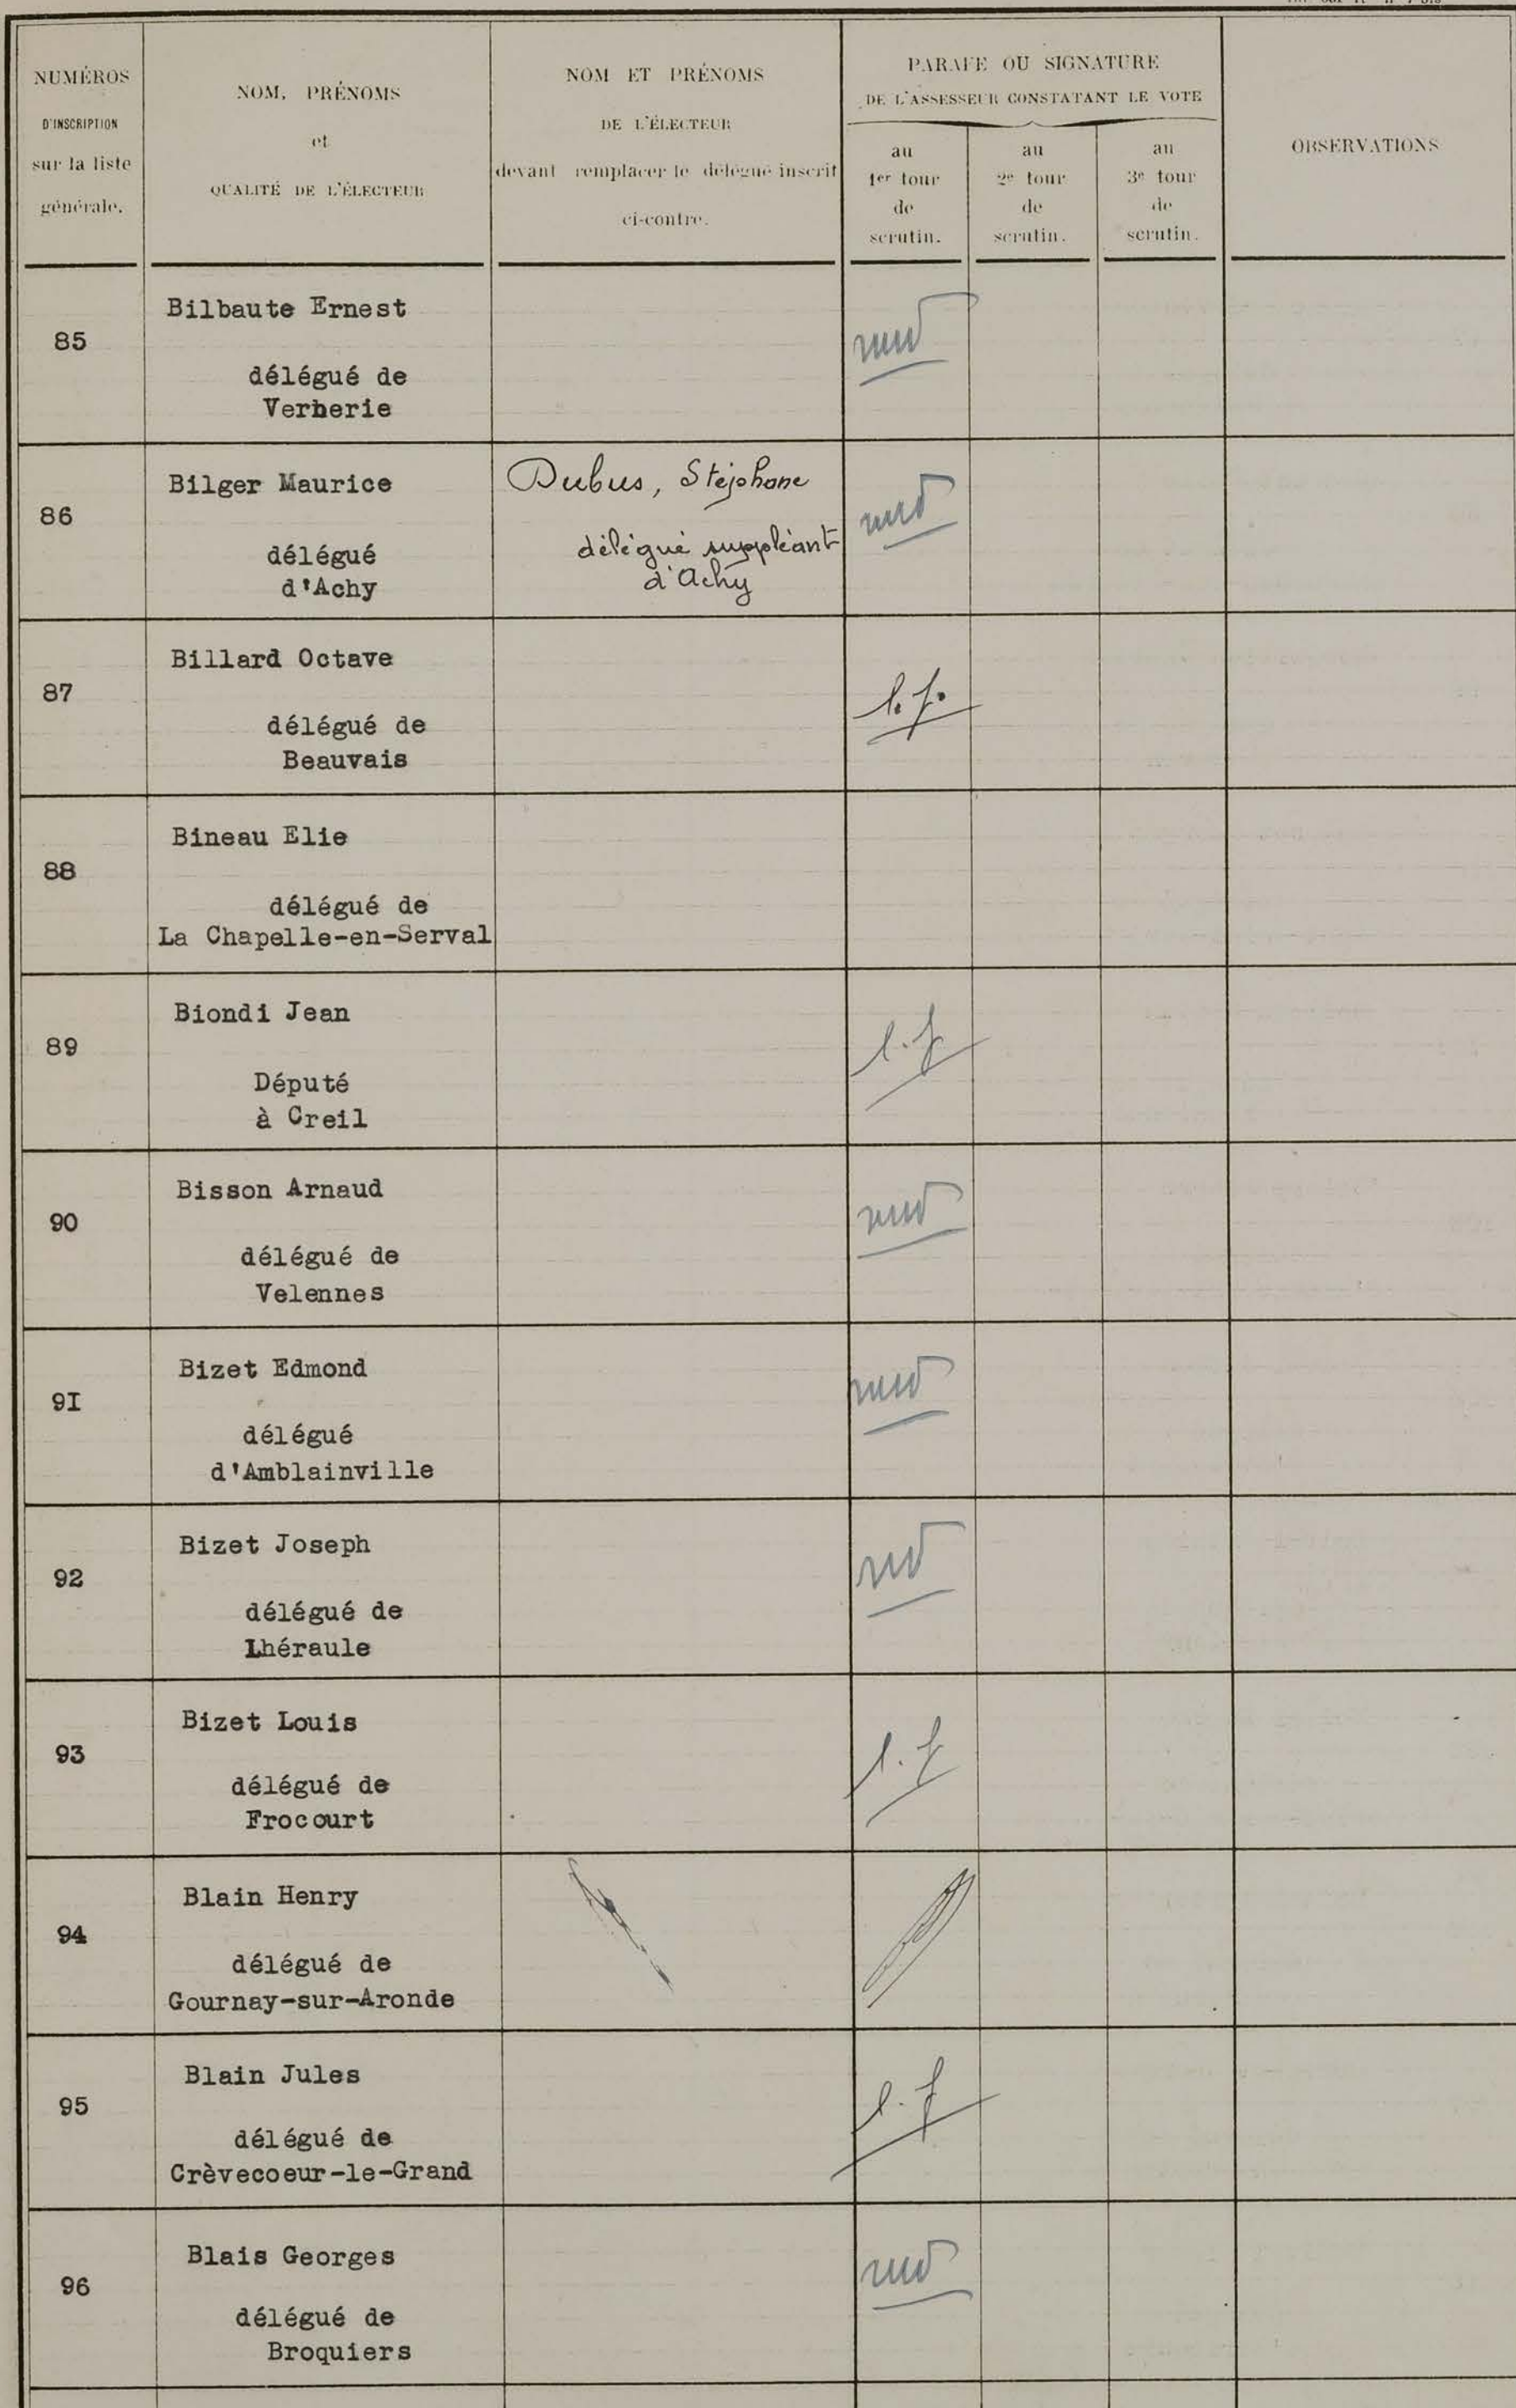 NUMÉROS
D'INSCRIPTION
sur la liste
générale.
NOM, PRÉNOMS
et
QUALITÉ DE L'ÉLECTEUR
NOM ET PRÉNOMS
DE L'ÉLECTEUR
devant remplacer le délégué inscrit
ci-contre.
PARAFE OU SIGNATURE
DE L'ASSESSEUR CONSTATANT LE VOTE
au
1er tour
de
scrutin.
au
2e tour
de
scrutin.
au
3e tour
de
scrutin.
OBSERVATIONS
85
Bilbaute Ernest
délégué de
Verberie
86
Bilger Maurice
délégué
d'Achy
Dubus, Stéphane
délégué suppléant
d'Achy
87
Billard Octave
délégué de
Beauvais
l.f.
88
Bineau Elie
délégué de
La Chapelle-en-Serval
89
Biondi Jean
Député
à Creil
l.f
90
Bisson Arnaud
délégué de
Velennes
9I
Bizet Edmond
délégué
d'Amblainville
92
Bizet Joseph
délégué de
Lhéraule
93
Bizet Louis
délégué de
Frocourt
l.f
94
Blain Henry
délégué de
Gournay-sur-Aronde
95
Blain Jules
délégué de
Crèvecoeur-le-Grand
l.f
96
Blais Georges
délégué de
Broquiers